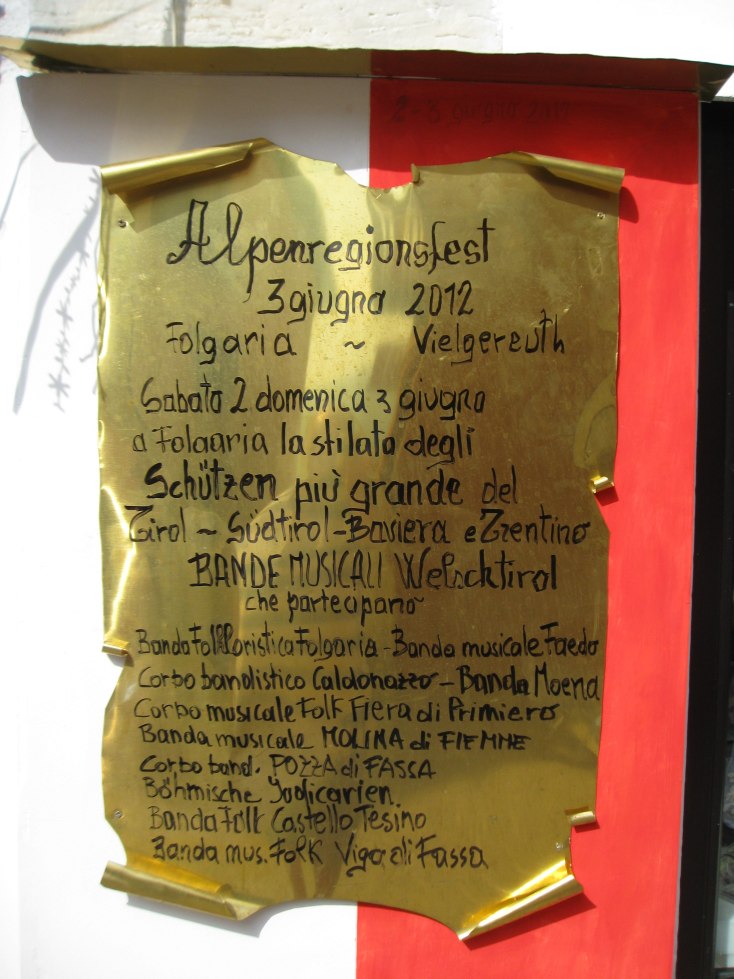 2-3 giugno 2012
Alpenregionsfest
3 giugno 2012
Folgaria ~ Vielgereuth
Sabato 2 domenica 3 giugno
a Folgaria la stilato degli
Schützen più grande del
Tirol ~ Südtirol - Baviera e Trentino
BANDE MUSICALI Welschtirol
che partecipano~
Banda Folkloristica Folgaria - Banda musicale Faedo
Corbo bandistico Caldonazzo - Banda Moena
Corbo musicale Folk Fiera di Primiero
Banda musicale MOLINA di FIEMME
Corbo band. POZZA di FASSA
Böhmische Judicarien.
Banda Folk Castello Tesino
Banda mus. Folk Vigo di Fassa